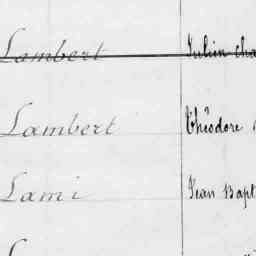 Lambert Julien
Lambert Théodore
Lami Jean Bapt